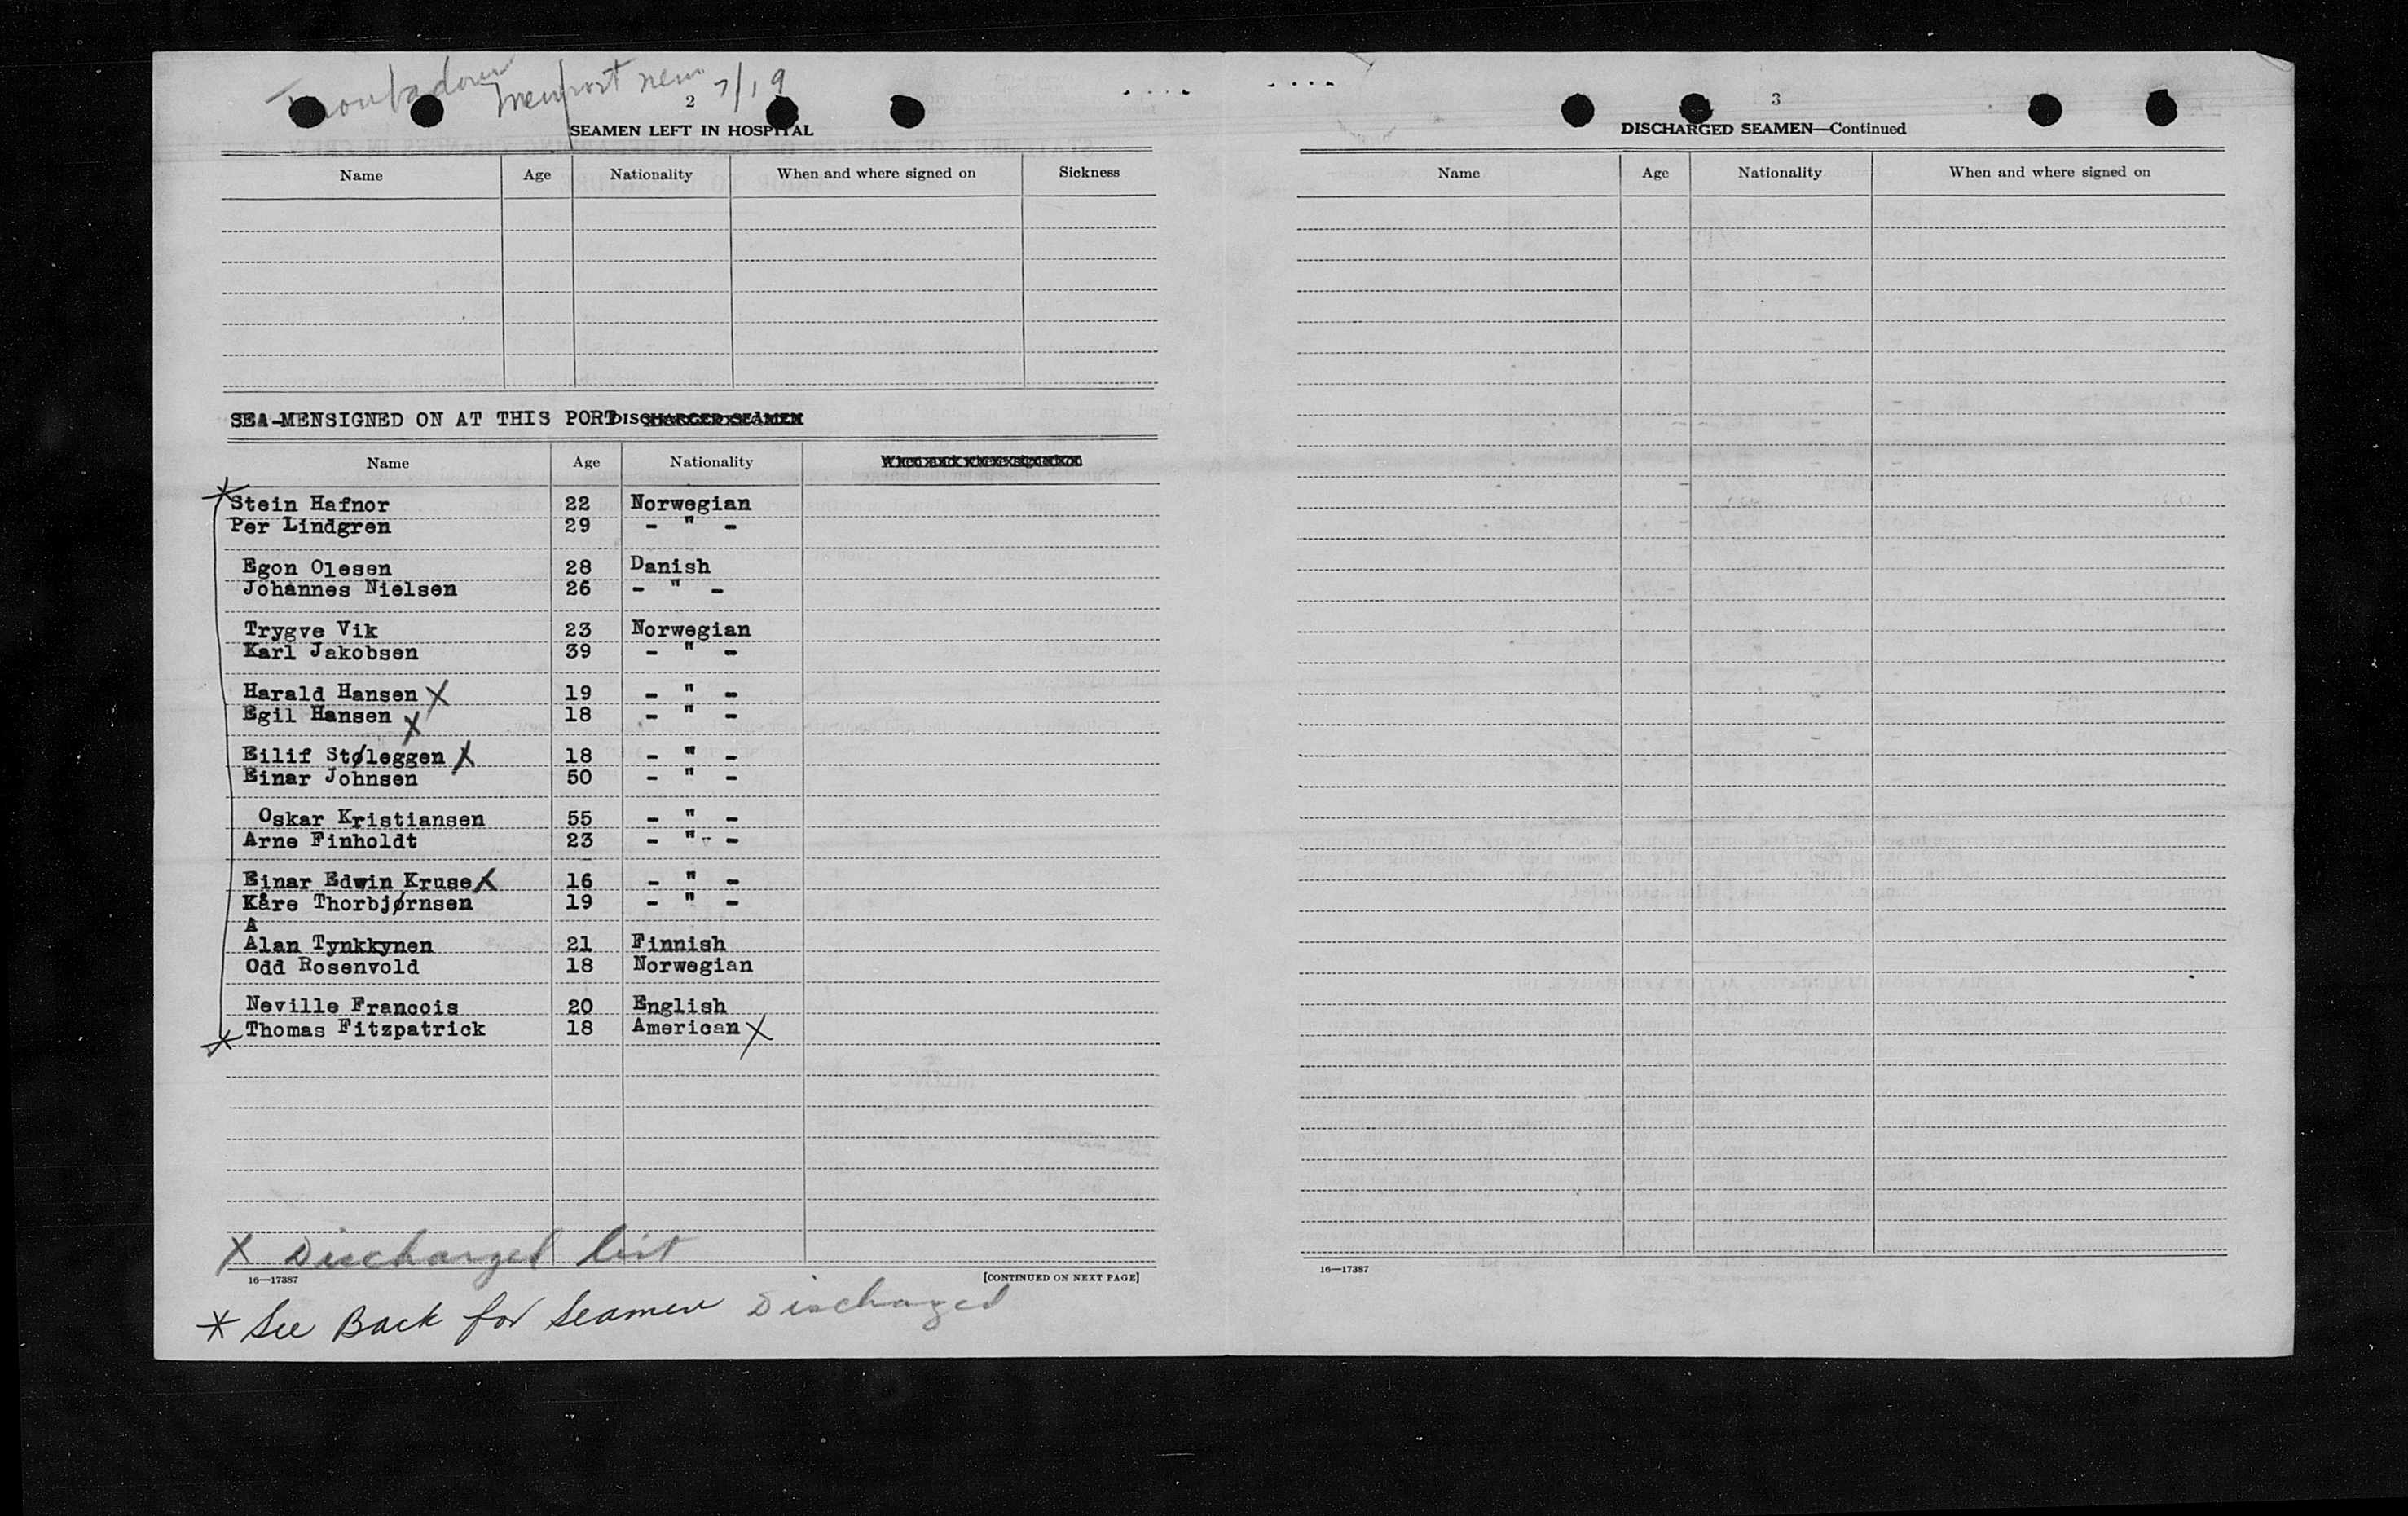 Troubadour Newport News 7/19
2
SEAMEN LEFT IN HOSPITAL
Name Age Nationality When and where signed on Sickness
SEA-MENSIGNED ON AT THIS PORT DISCHARGED SEAMEN
Name Age Nationality When and where signed on
Stein Hafnor 22 Norwegian
Per Lindgren 29 - " -
Egon Olesen 28 Danish
Johannes Nielsen 26 - " -
Trygve Vik 23 Norwegian
Karl Jakobsen 39 - " -
Harald Hansen X 19 - " -
Egil Hansen X 18 - " -
Eilif Støleggen X 18 - " -
Einar Johnsen 50 - " -
Oskar Kristiansen 55 - " -
Arne Finholdt 23 - " -
Einar Edwin Kruse X 16 - " -
Kåre Thorbjørnsen 19 - " -
A
Alan Tynkkynen 21 Finnish
Odd Rosenvold 18 Norwegian
Neville Francois 20 English
Thomas Fitzpatrick 18 American X
X Discharged list
16—17387 [CONTINUED ON NEXT PAGE]
* See Back for Seamen Discharged
3
DISCHARGED SEAMEN—Continued
Name Age Nationality When and where signed on
16—17387